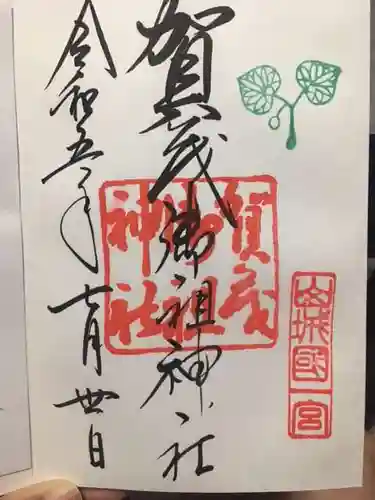 山城國一宮
賀茂御祖神社
賀茂
御祖
神社
令和五年
七月廿日